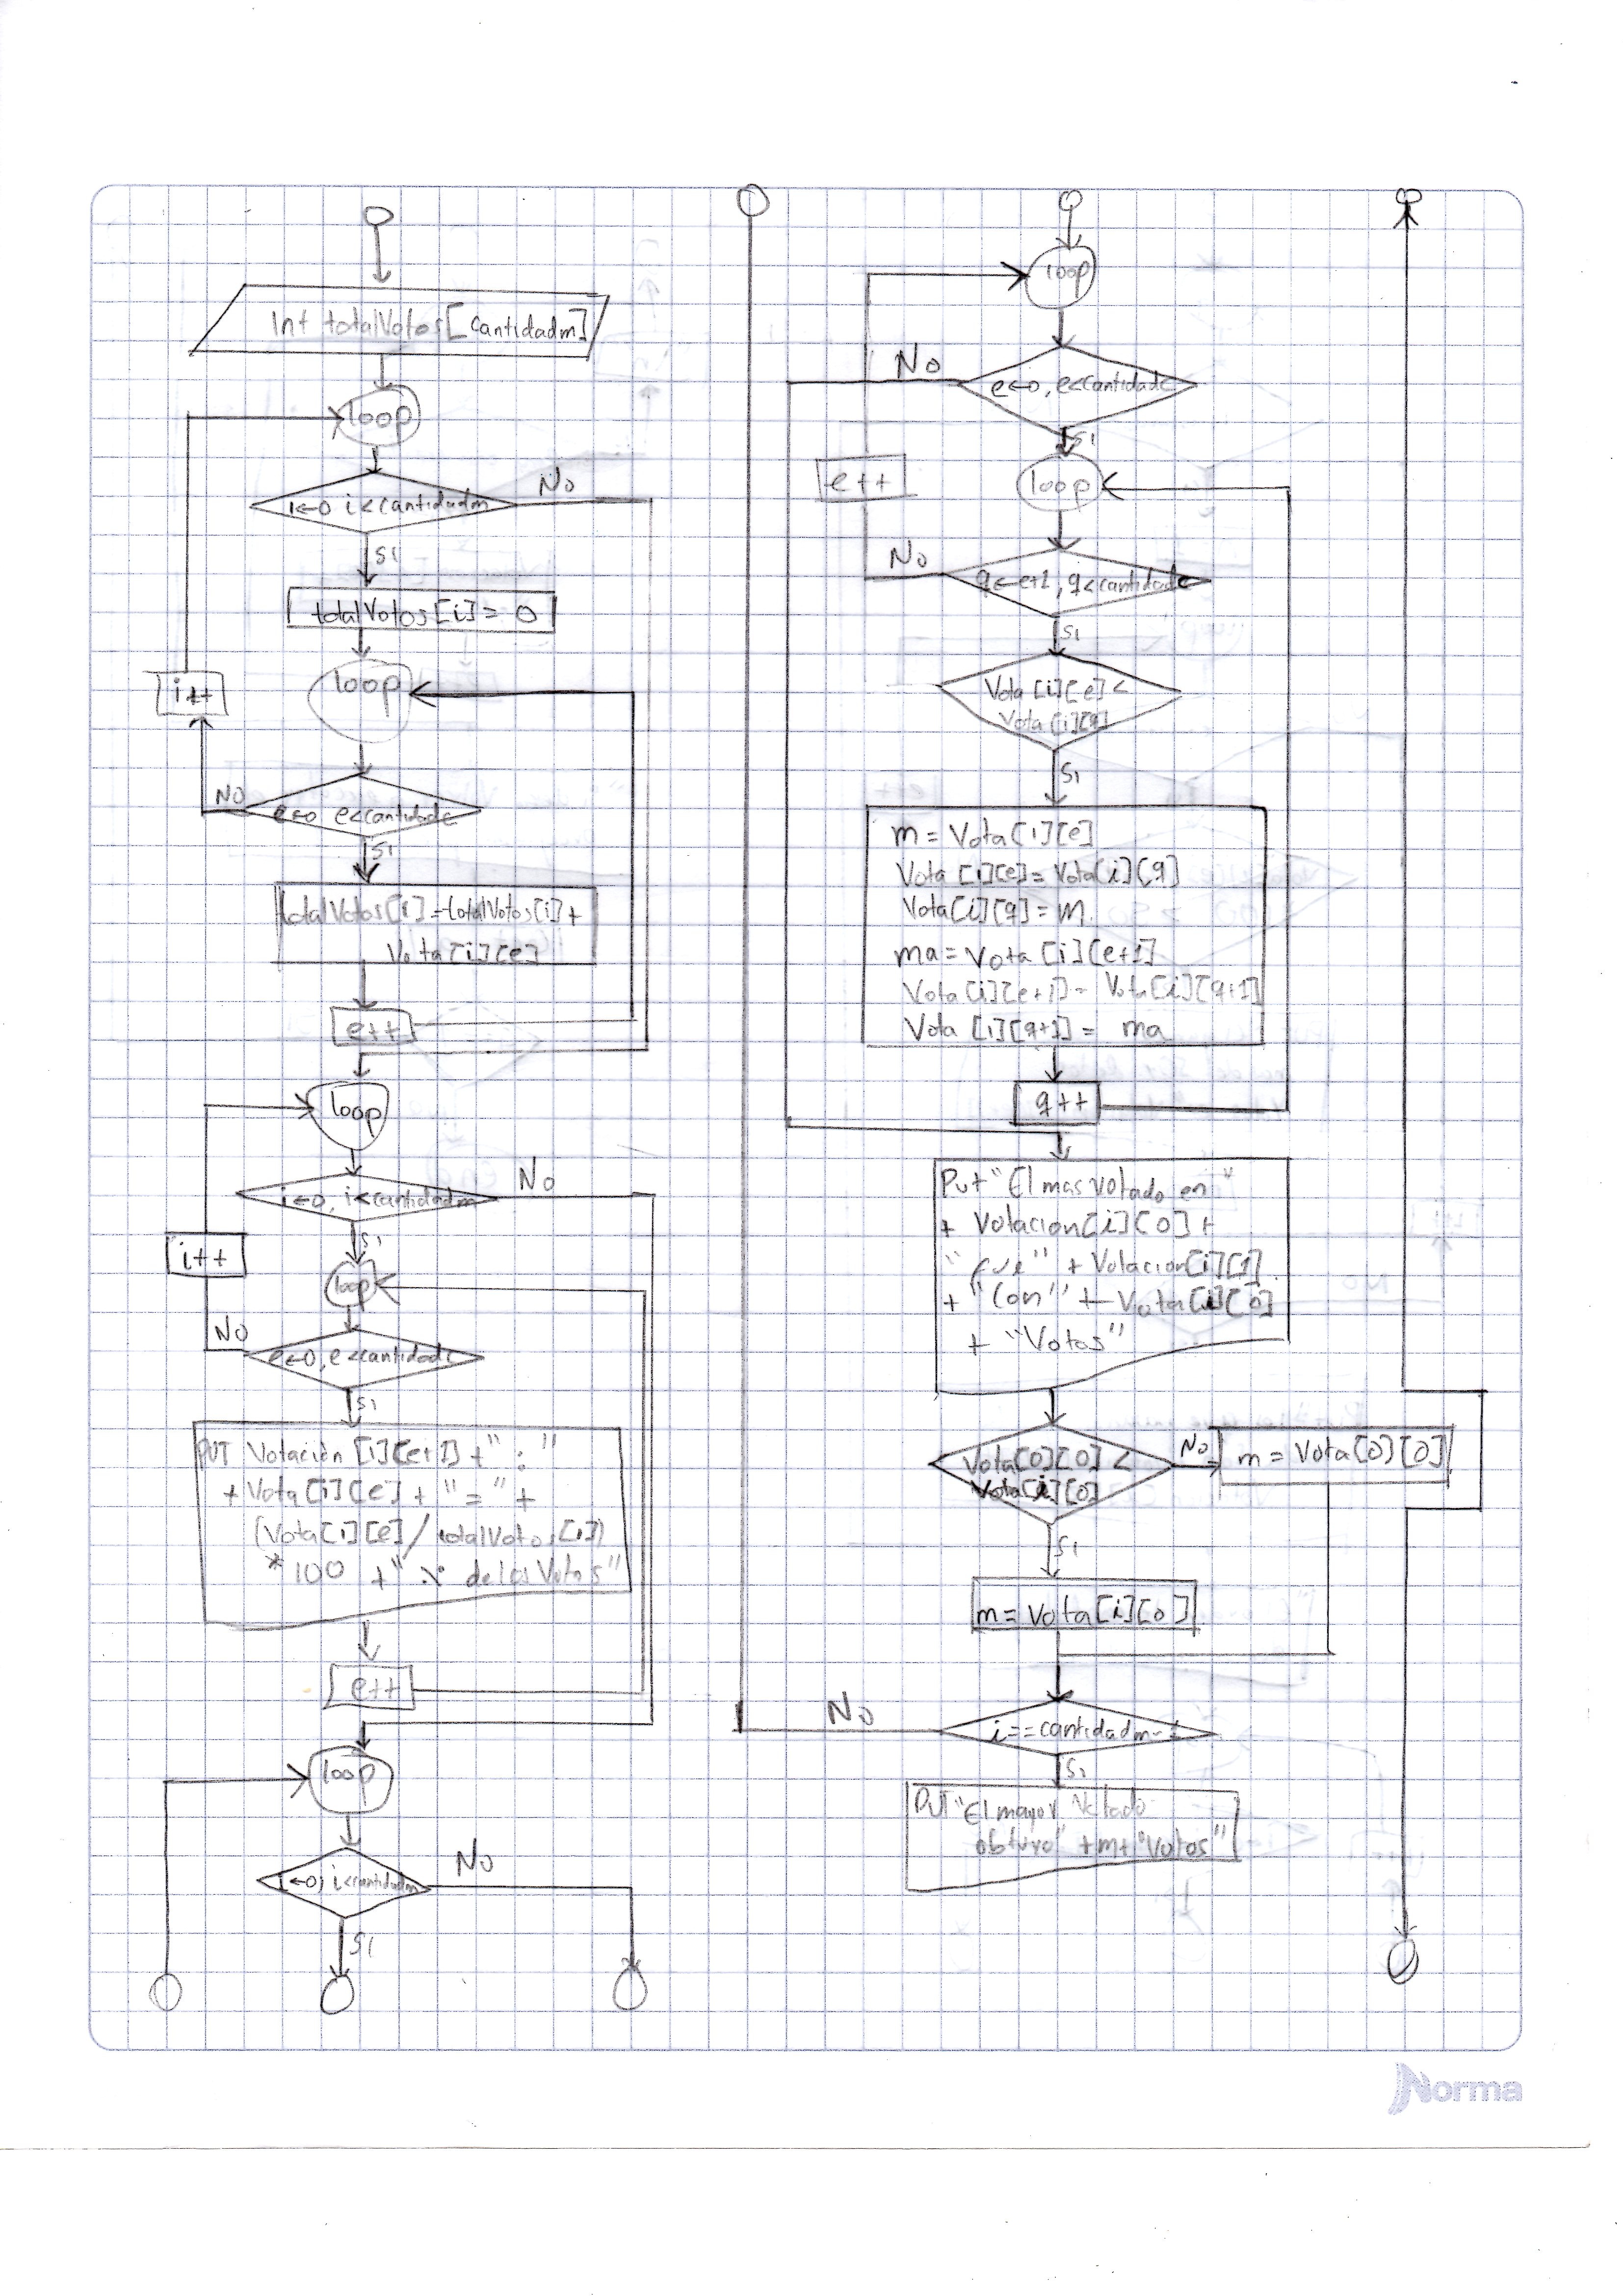 Int totalVotos[cantidadm]
loop
i←0 i<cantidadm
No
si
totalVotos[i]= 0
loop
i++
No
e←0 e<cantidade
si
totalVotos[i]=totalVotos[i]+
Vota[i][e]
e++
loop
i←0, i<cantidadm
No
si
i++
loop
No
e←0, e<cantidade
si
PUT Votación [i][e+1] +" : "
+ Vota[i][e] + "=" +
(Vota[i][e]/totalVotos[i])
*100 +" % de los Votos"
e++
loop
i←0, i<cantidadm
No
si
loop
No
e←0, e<cantidade
si
e++
loop
No
q←e+1, q<cantidade
si
Vota [i][e]<
Vota[i][q]
si
m = Vota[i][e]
Vota [i][e]= Vota[i][q]
Vota[i][q]= m
ma = Vota [i][e+1]
Vota[i][e+1]= Vota[i][q+1]
Vota [i][q+1] = ma
q++
Put "El mas votado en "
+ Votacion[i][0] +
" fue" + Votacion[i][1]
+ "Con" + Vota[i][0]
+ "Votos"
Vota[0][0] <
Vota[i][0]
No
m = Vota[0][0]
si
m= Vota[i][0]
No
i==cantidadm-1
si
PUT "El mayor Votado
obtuvo" +m+"Votos"
Norma